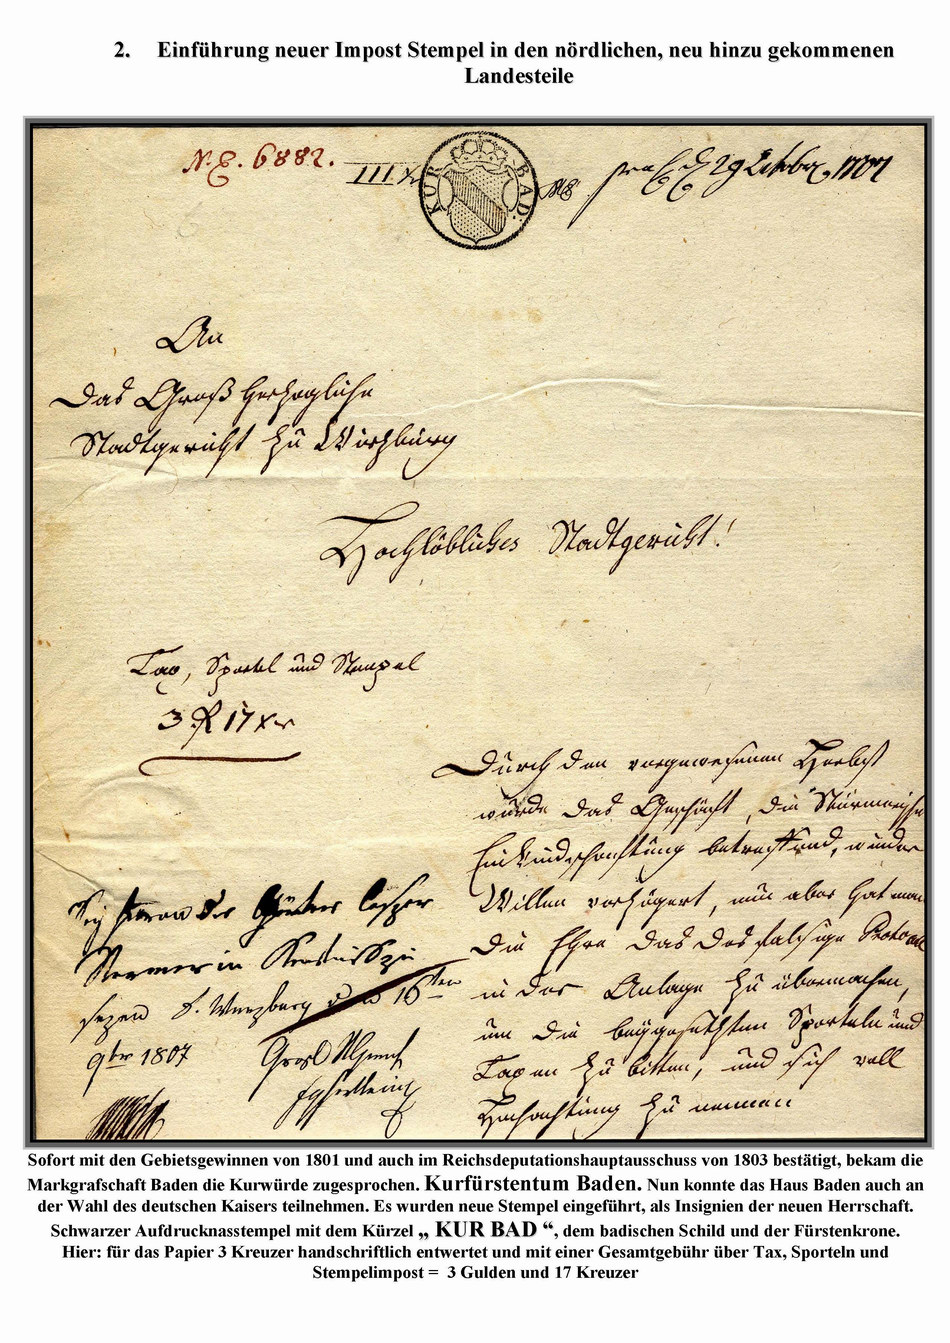 2. Einführung neuer Impost Stempel in den nördlichen, neu hinzu gekommenen
Landesteile
N.E. 6882.
III x
KUR BAD:
29
An
das Groß Herzogliche
Stadtgericht zu Würzburg
Hochlöbliches Stadtgericht!
Tax, Sportel und Stempel
3 R 17 xr
Durch den vorgewesenen Herbst
wurde das Geschäft, die
Einkindschaftung betreffend, wieder
Willen verzögert, nun aber hat man
die Ehre das desfalsige Protocoll
in der Anlage zu übermachen,
um die beygesetzten Sporteln und
Taxen zu bitten, und sich voll
Hochachtung zu nennen
zu
sezen d. Würzburg den 16ten
9br 1807
Sofort mit den Gebietsgewinnen von 1801 und auch im Reichsdeputationshauptausschuss von 1803 bestätigt, bekam die
Markgrafschaft Baden die Kurwürde zugesprochen. Kurfürstentum Baden. Nun konnte das Haus Baden auch an
der Wahl des deutschen Kaisers teilnehmen. Es wurden neue Stempel eingeführt, als Insignien der neuen Herrschaft.
Schwarzer Aufdrucknasstempel mit dem Kürzel „ KUR BAD “, dem badischen Schild und der Fürstenkrone.
Hier: für das Papier 3 Kreuzer handschriftlich entwertet und mit einer Gesamtgebühr über Tax, Sporteln und
Stempelimpost = 3 Gulden und 17 Kreuzer